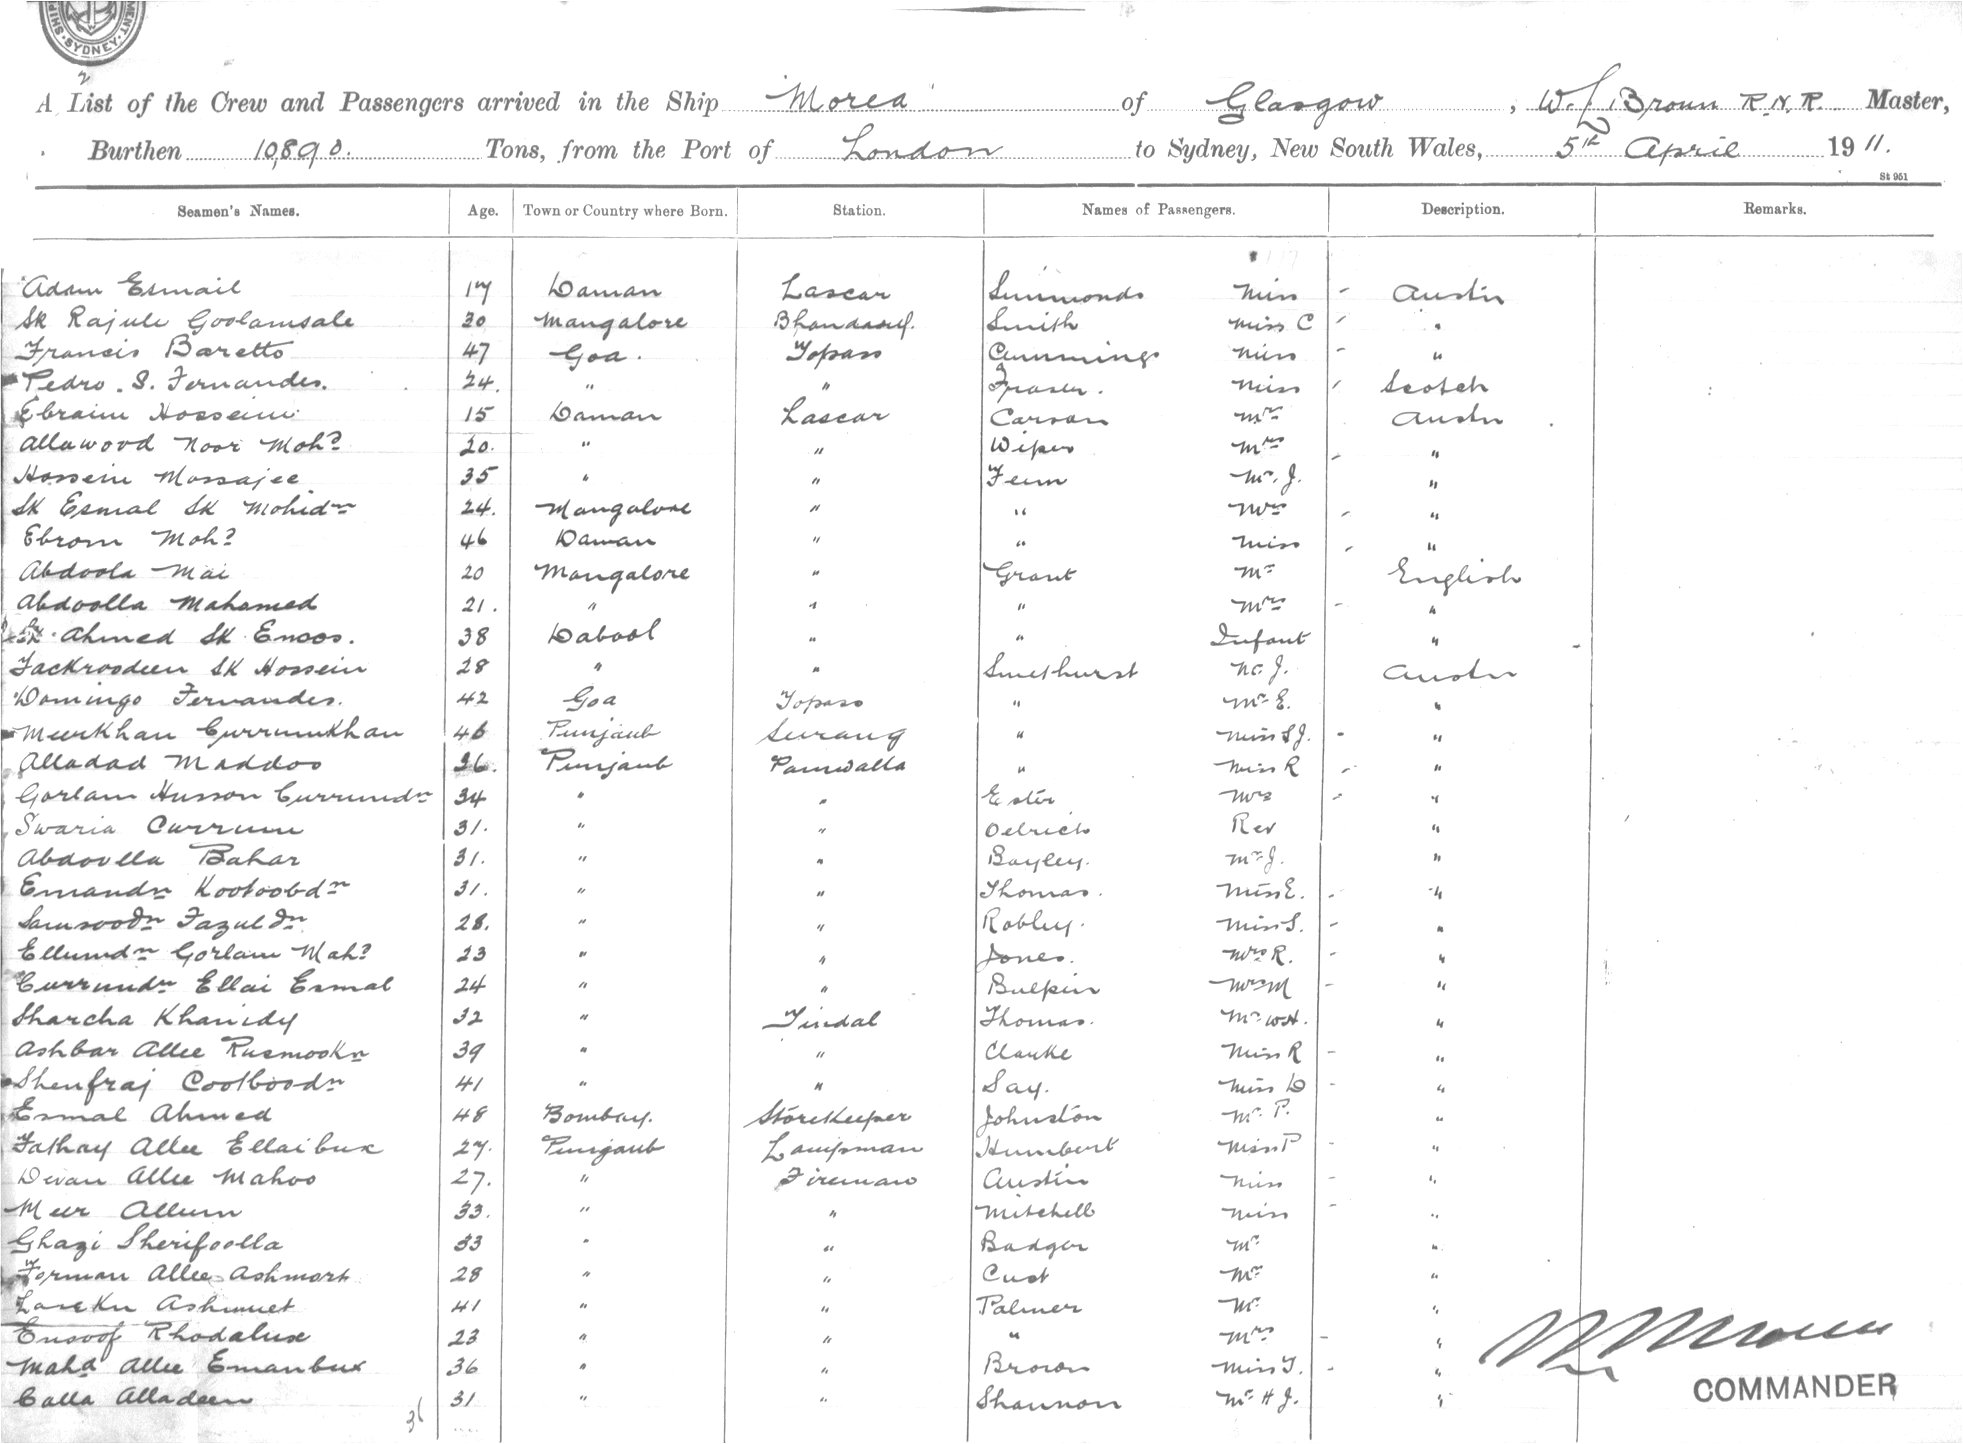 SYDNEY
2
A List of the Crew and Passengers arrived in the Ship Morea of Glasgow, W. Brown R.N.R. Master,
Burthen 10,890. Tons, from the Port of London to Sydney, New South Wales, 5th April 1911.
St 951
Seamen's Names. Age. Town or Country where Born. Station. Names of Passengers. Description. Remarks.
Adam Esmail 17 Daman Lascar Simmonds Miss - Austn
SK Rajule Goolamsale 30 Mangalore Smith Miss C " 
Francis Baretto 47 Goa. Topass Cummings Miss - "
Pedro. S. Fernandes. 24. " " Fraser. Miss Scotch
Ebraim Hossein 15 Daman Lascar Carson Mr Austn
Allawood Noor Mohd 20. " " Wiper Mrs "
Hossein Mossajee 35 " " Fenn Mr. J. "
SK Esmal SK Mohidn 24. Mangalore " " Mrs - "
Ebrom Mohd 46 Daman " " Miss - "
Abdoola Mai 20 Mangalore " Grant Mr English
Abdoolla Mahomed 21. " " " Mrs - "
SK Ahmed SK Enoos. 38 Dabool " " Infant "
Fackroodeen SK Hossein 28 " " Smethurst Mr. J. Austn
Domingo Fernandes. 42 Goa Topass " Mr E. "
Meerkhan Currumkhan 46 Punjaub Serang " Miss S J. - "
Alladad Maddoo 36. Punjaub Paniwalla " Miss R - "
Gorlam Husson Currumdn 34 " " Ester Mrs - "
Swaria Currum 31. " " Oelrich Rev "
Abdoolla Bahar 31. " " Bayley. Mr J. "
Emandn Kootoobdn 31. " " Thomas. Miss E. - "
Samsoodn Fazuldn 28. " " Robley. Miss S. - "
Ellumdn Gorlam Mahd 23 " " Jones. Mrs R. - "
Currumdn Ellai Esmal 24 " " Bulpin Mrs M - "
Sharcha Khanidy 32 " Tindal Thomas. Mr W H. "
Ashbar Allee Rusmookn 39 " " Clarke Miss R - "
Shenfraj Cootboodn 41 " " Say. Miss D - "
Esmal Ahmed 48 Bombay. Storekeeper Johnston Mr P. "
Fathay Allee Ellaibux 27. Punjaub Lampsman Humbert Miss P - "
Devan Allee Mahoo 27. " Fireman Austin Miss - "
Meer Allum 33. " " Mitchell Miss - "
Ghazi Sherifoolla 33 " " Badger Mr "
Forman Allee Ashmort 28 " " Cust Mr "
Ashmuet 41 " " Palmer Mr "
Ensoof Rhodabux 23 " " " Mrs - "
Mahd Allee Emanbux 36 " " Brown Miss T. - "
Calla Alladeen 31 " " Shannon Mr H J. "
36
COMMANDER